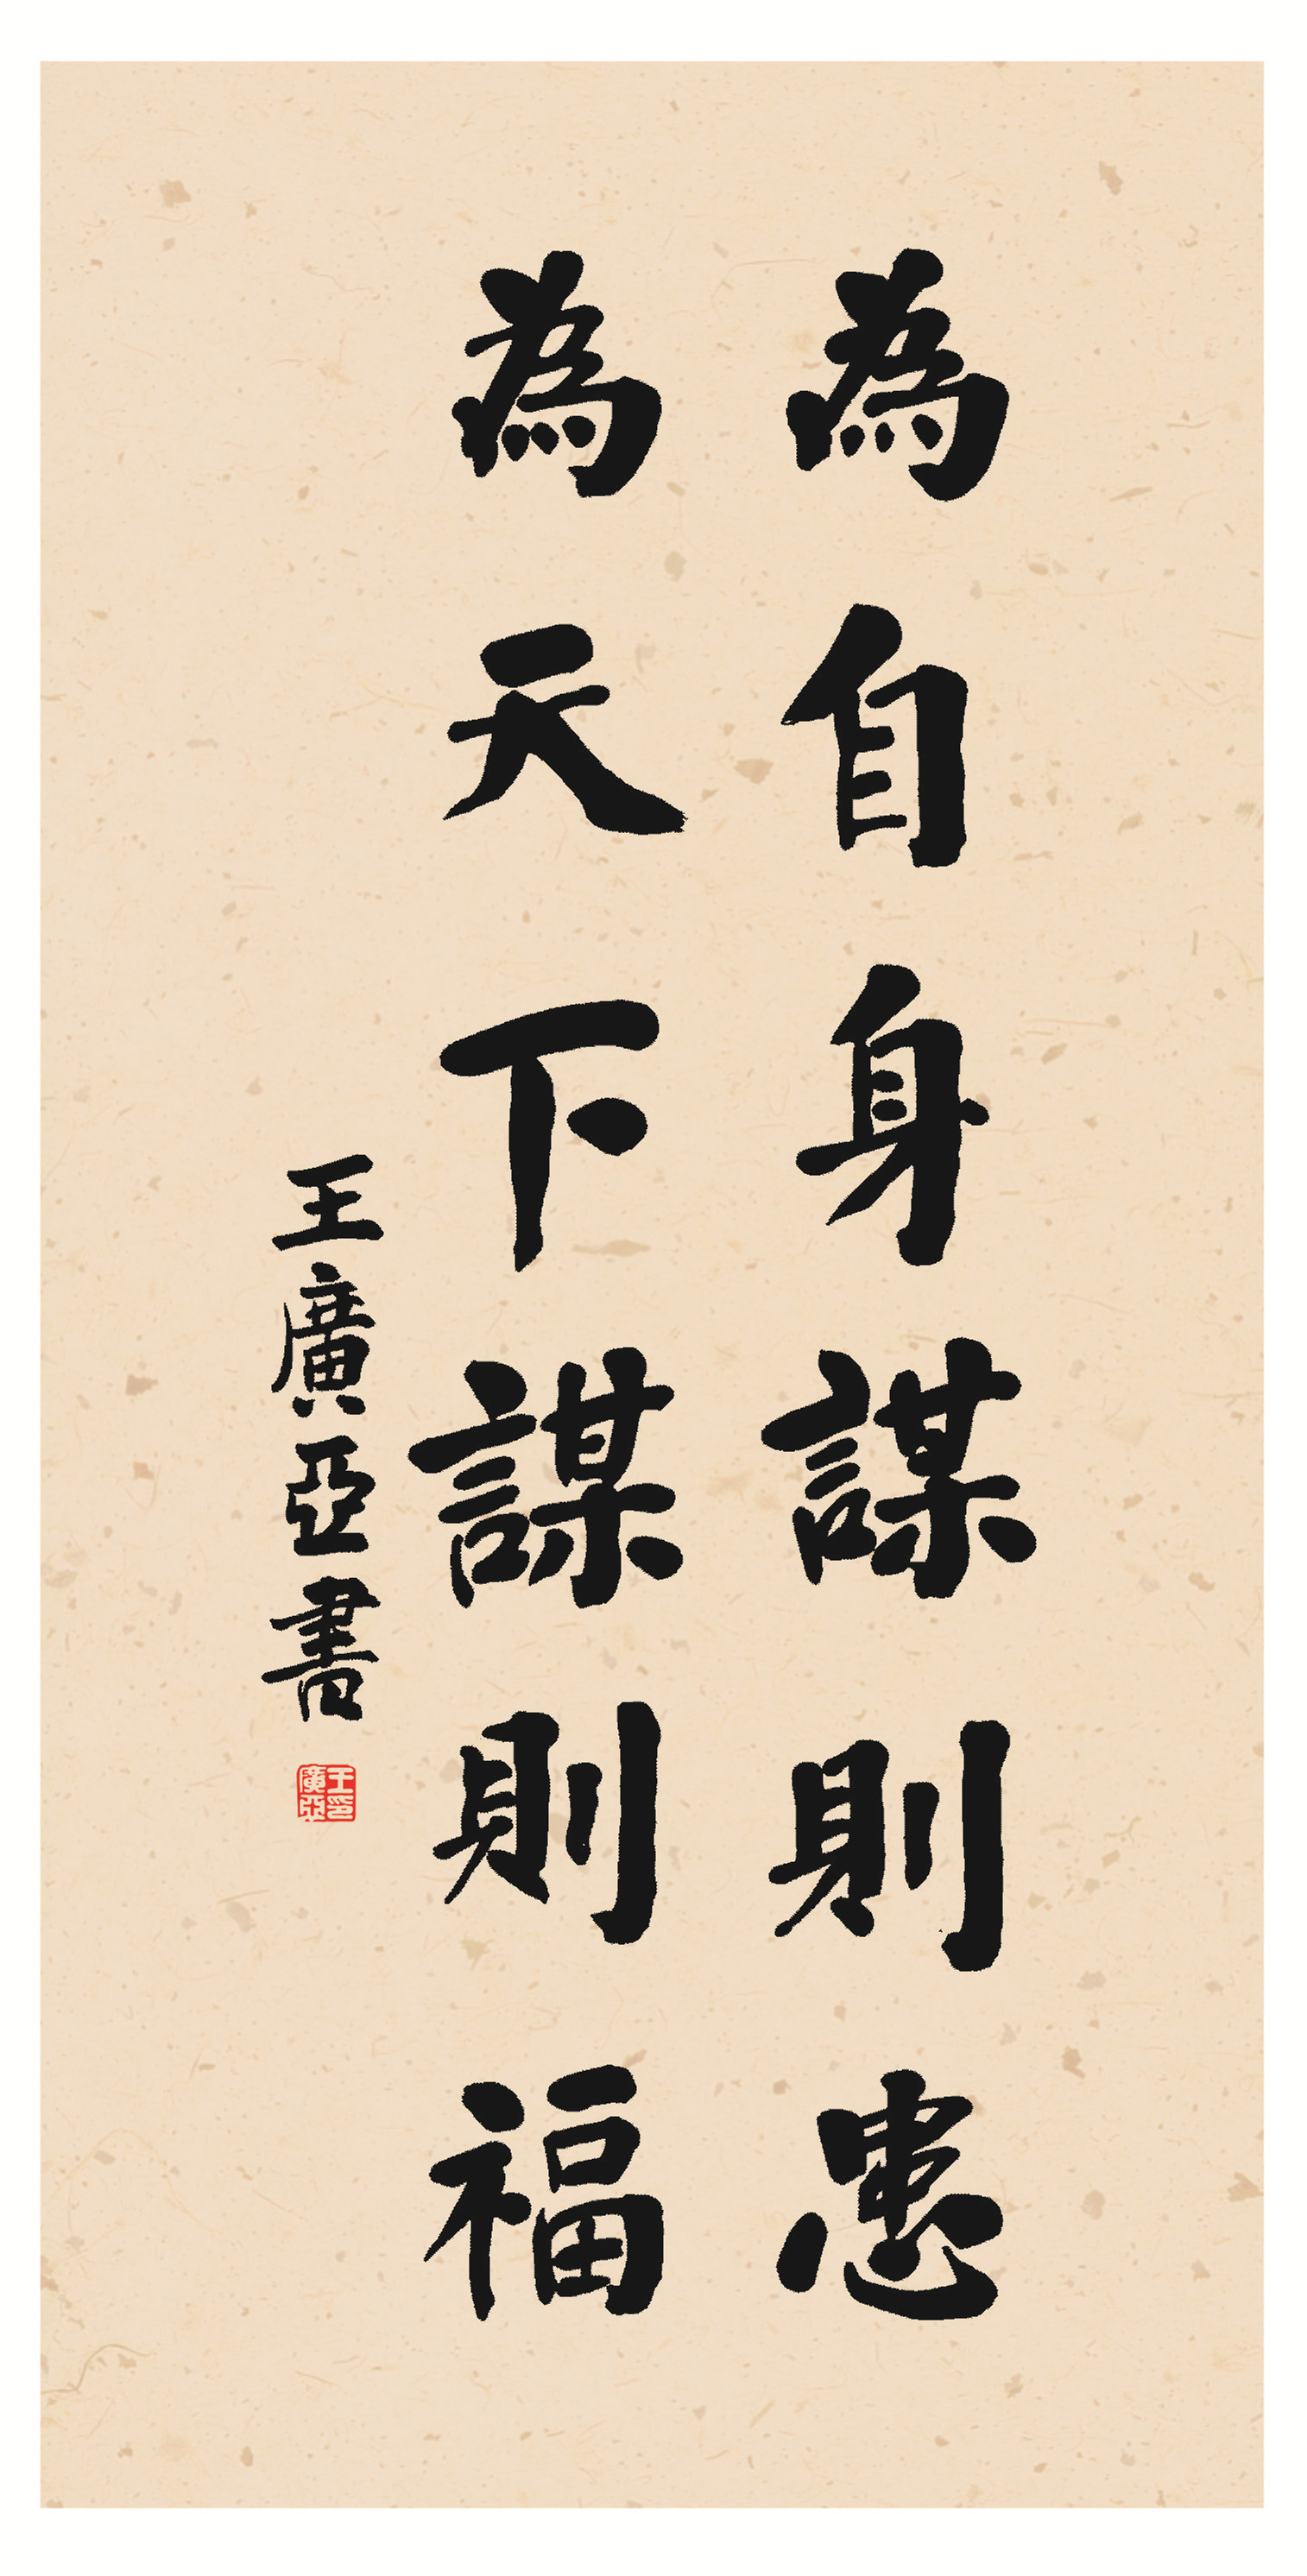 為自身謀則患
為天下謀則福
王廣亞書
王廣亞印